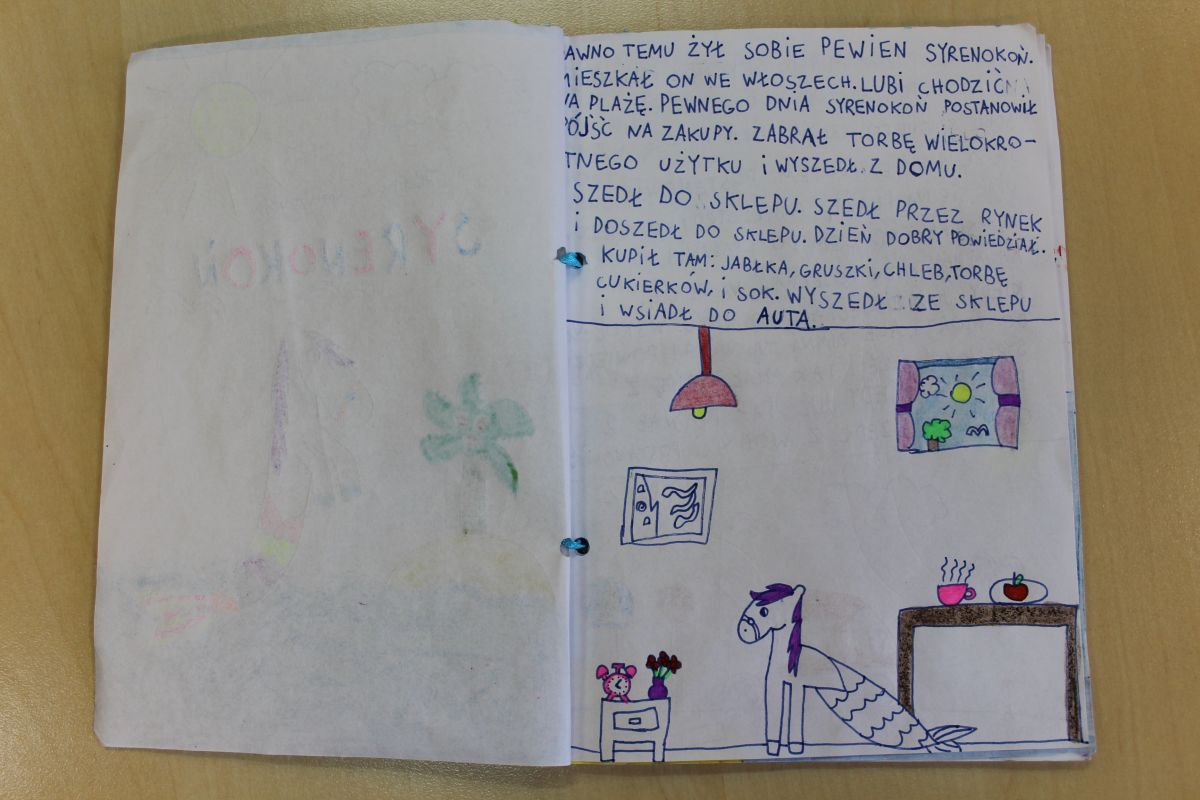 SYRENOKOŃ
AWNO TEMU ŻYŁ SOBIE PEWIEN SYRENOKOŃ.
MIESZKAŁ ON WE WŁOSZECH. LUBI CHODZIĆ NA
NA PLAŻĘ. PEWNEGO DNIA SYRENOKOŃ POSTANOWIŁ
PÓJŚĆ NA ZAKUPY. ZABRAŁ TORBĘ WIELOKRO-
TNEGO UŻYTKU i WYSZEDŁ Z DOMU.
SZEDŁ DO SKLEPU. SZEDŁ PRZEZ RYNEK
i DOSZEDŁ DO SKLEPU. DZIEŃ DOBRY POWIEDZIAŁ.
KUPIŁ TAM: JABŁKA, GRUSZKI, CHLEB, TORBĘ
CUKIERKÓW, i SOK. WYSZEDŁ ZE SKLEPU
i WSIADŁ DO AUTA.